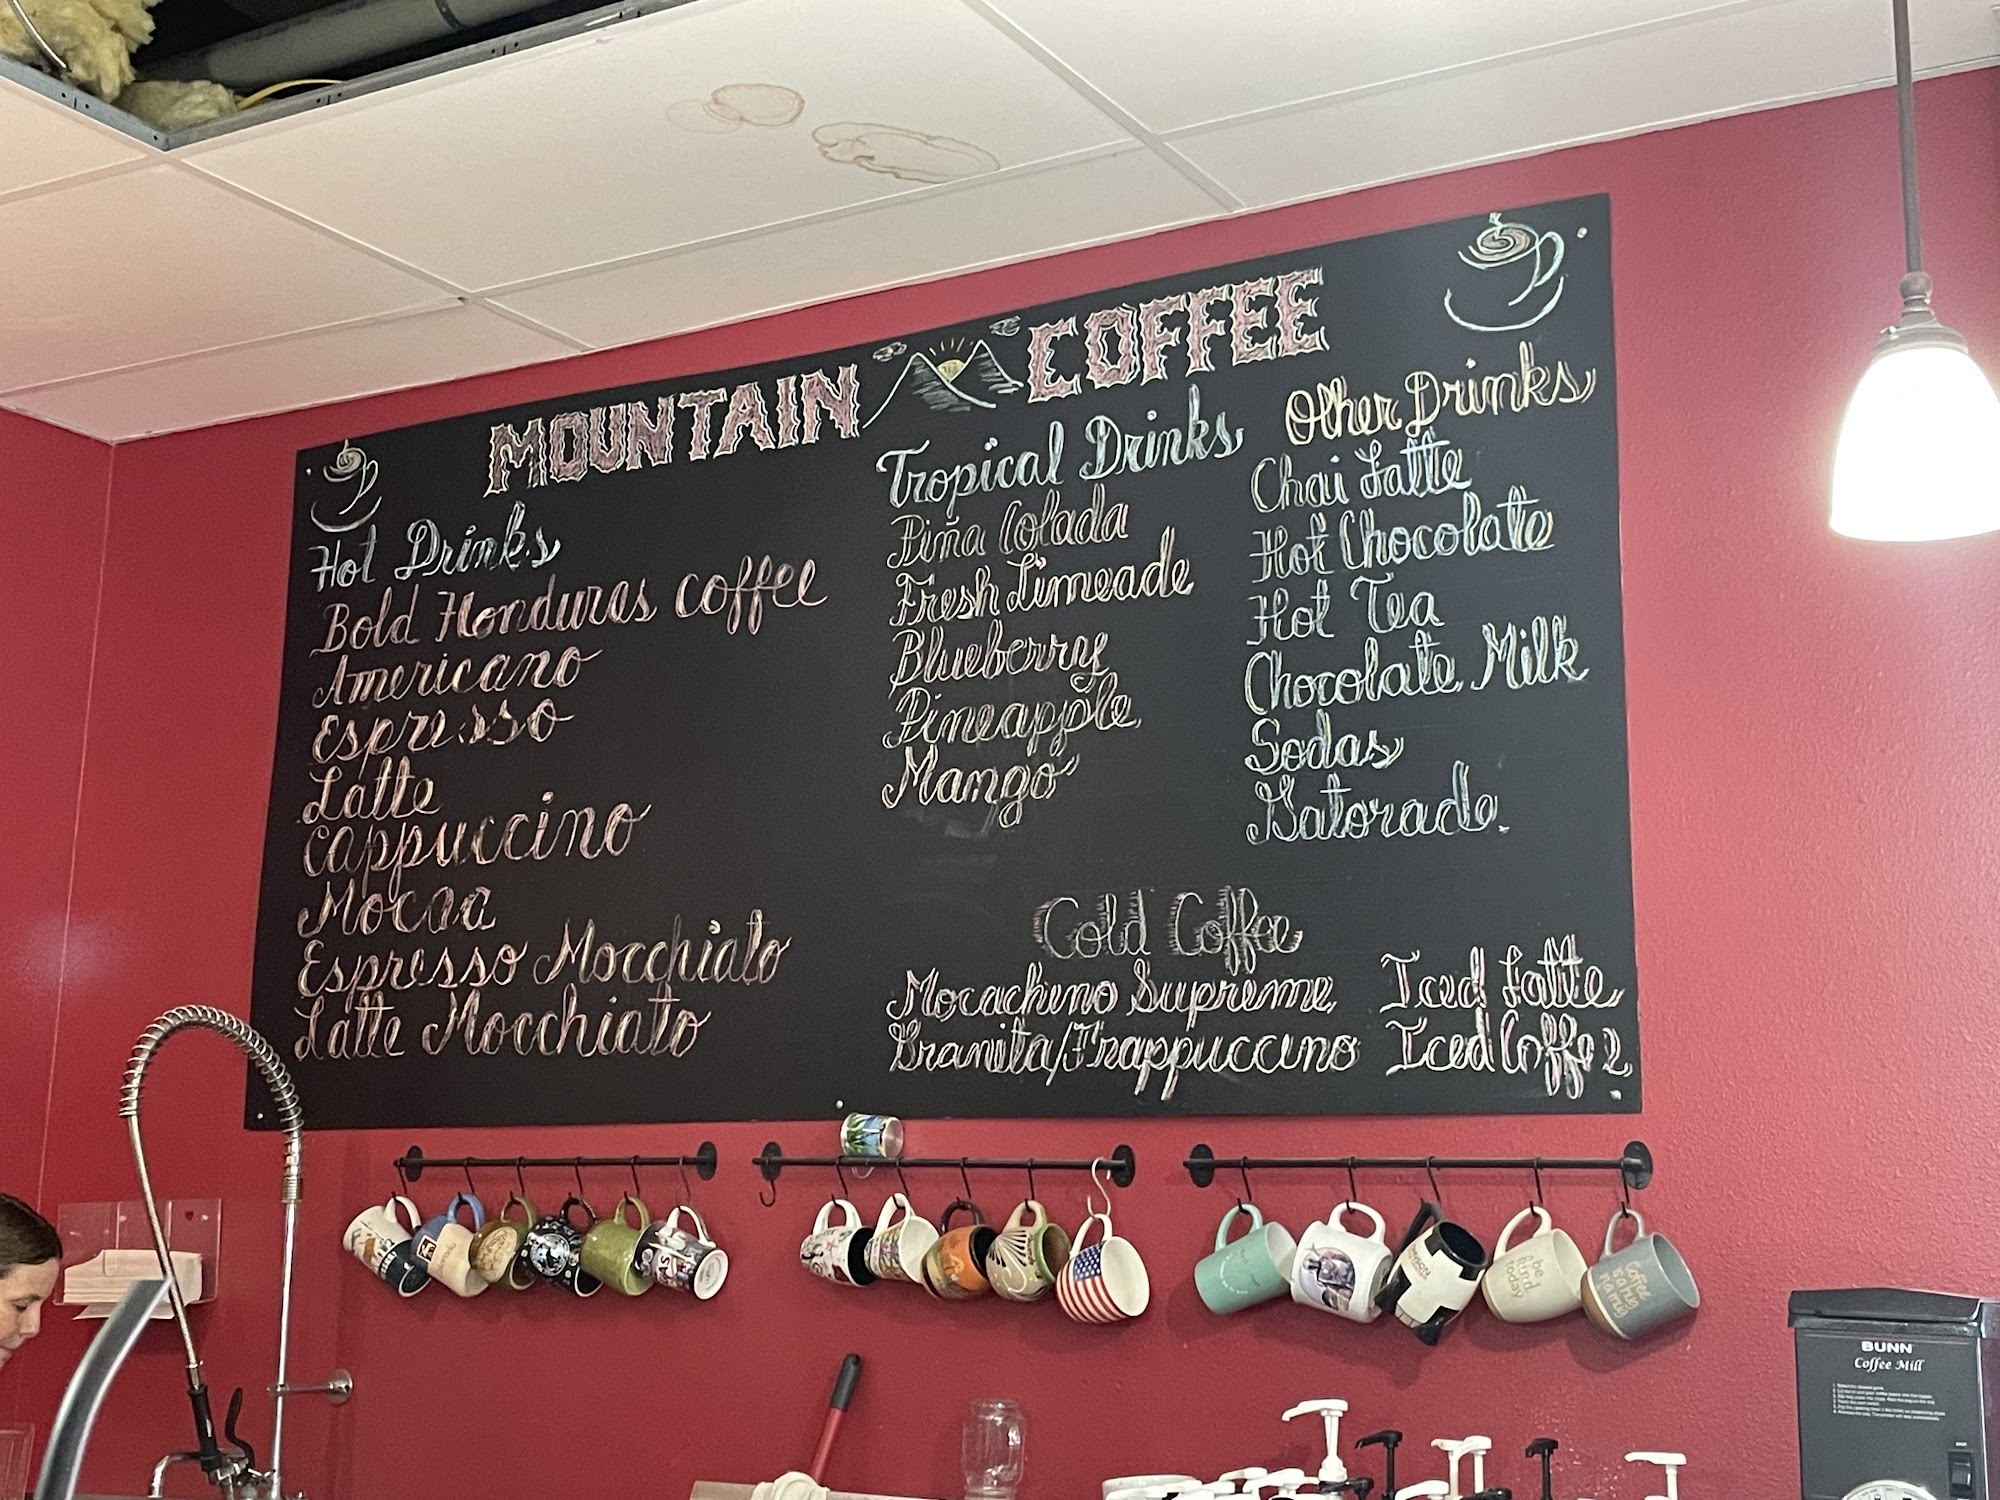 MOUNTAIN COFFEE
Hot Drinks
Bold Honduras coffee
Americano
Espresso
Latte
cappuccino
Mocaa
Espresso Mocchiato
Latte Mocchiato
Tropical Drinks
Piña Colada
Fresh Limeade
Blueberry
Pineapple
Mango
Other Drinks
Chai Latte
Hot Chocolate
Hot Tea
Chocolate Milk
Sodas
Gatorade.
Cold Coffee
Mocachino Supreme
Granita/Frappuccino
Iced Latte
Iced Coffee
be
kind
today
Coffee
BUNN
Coffee Mill